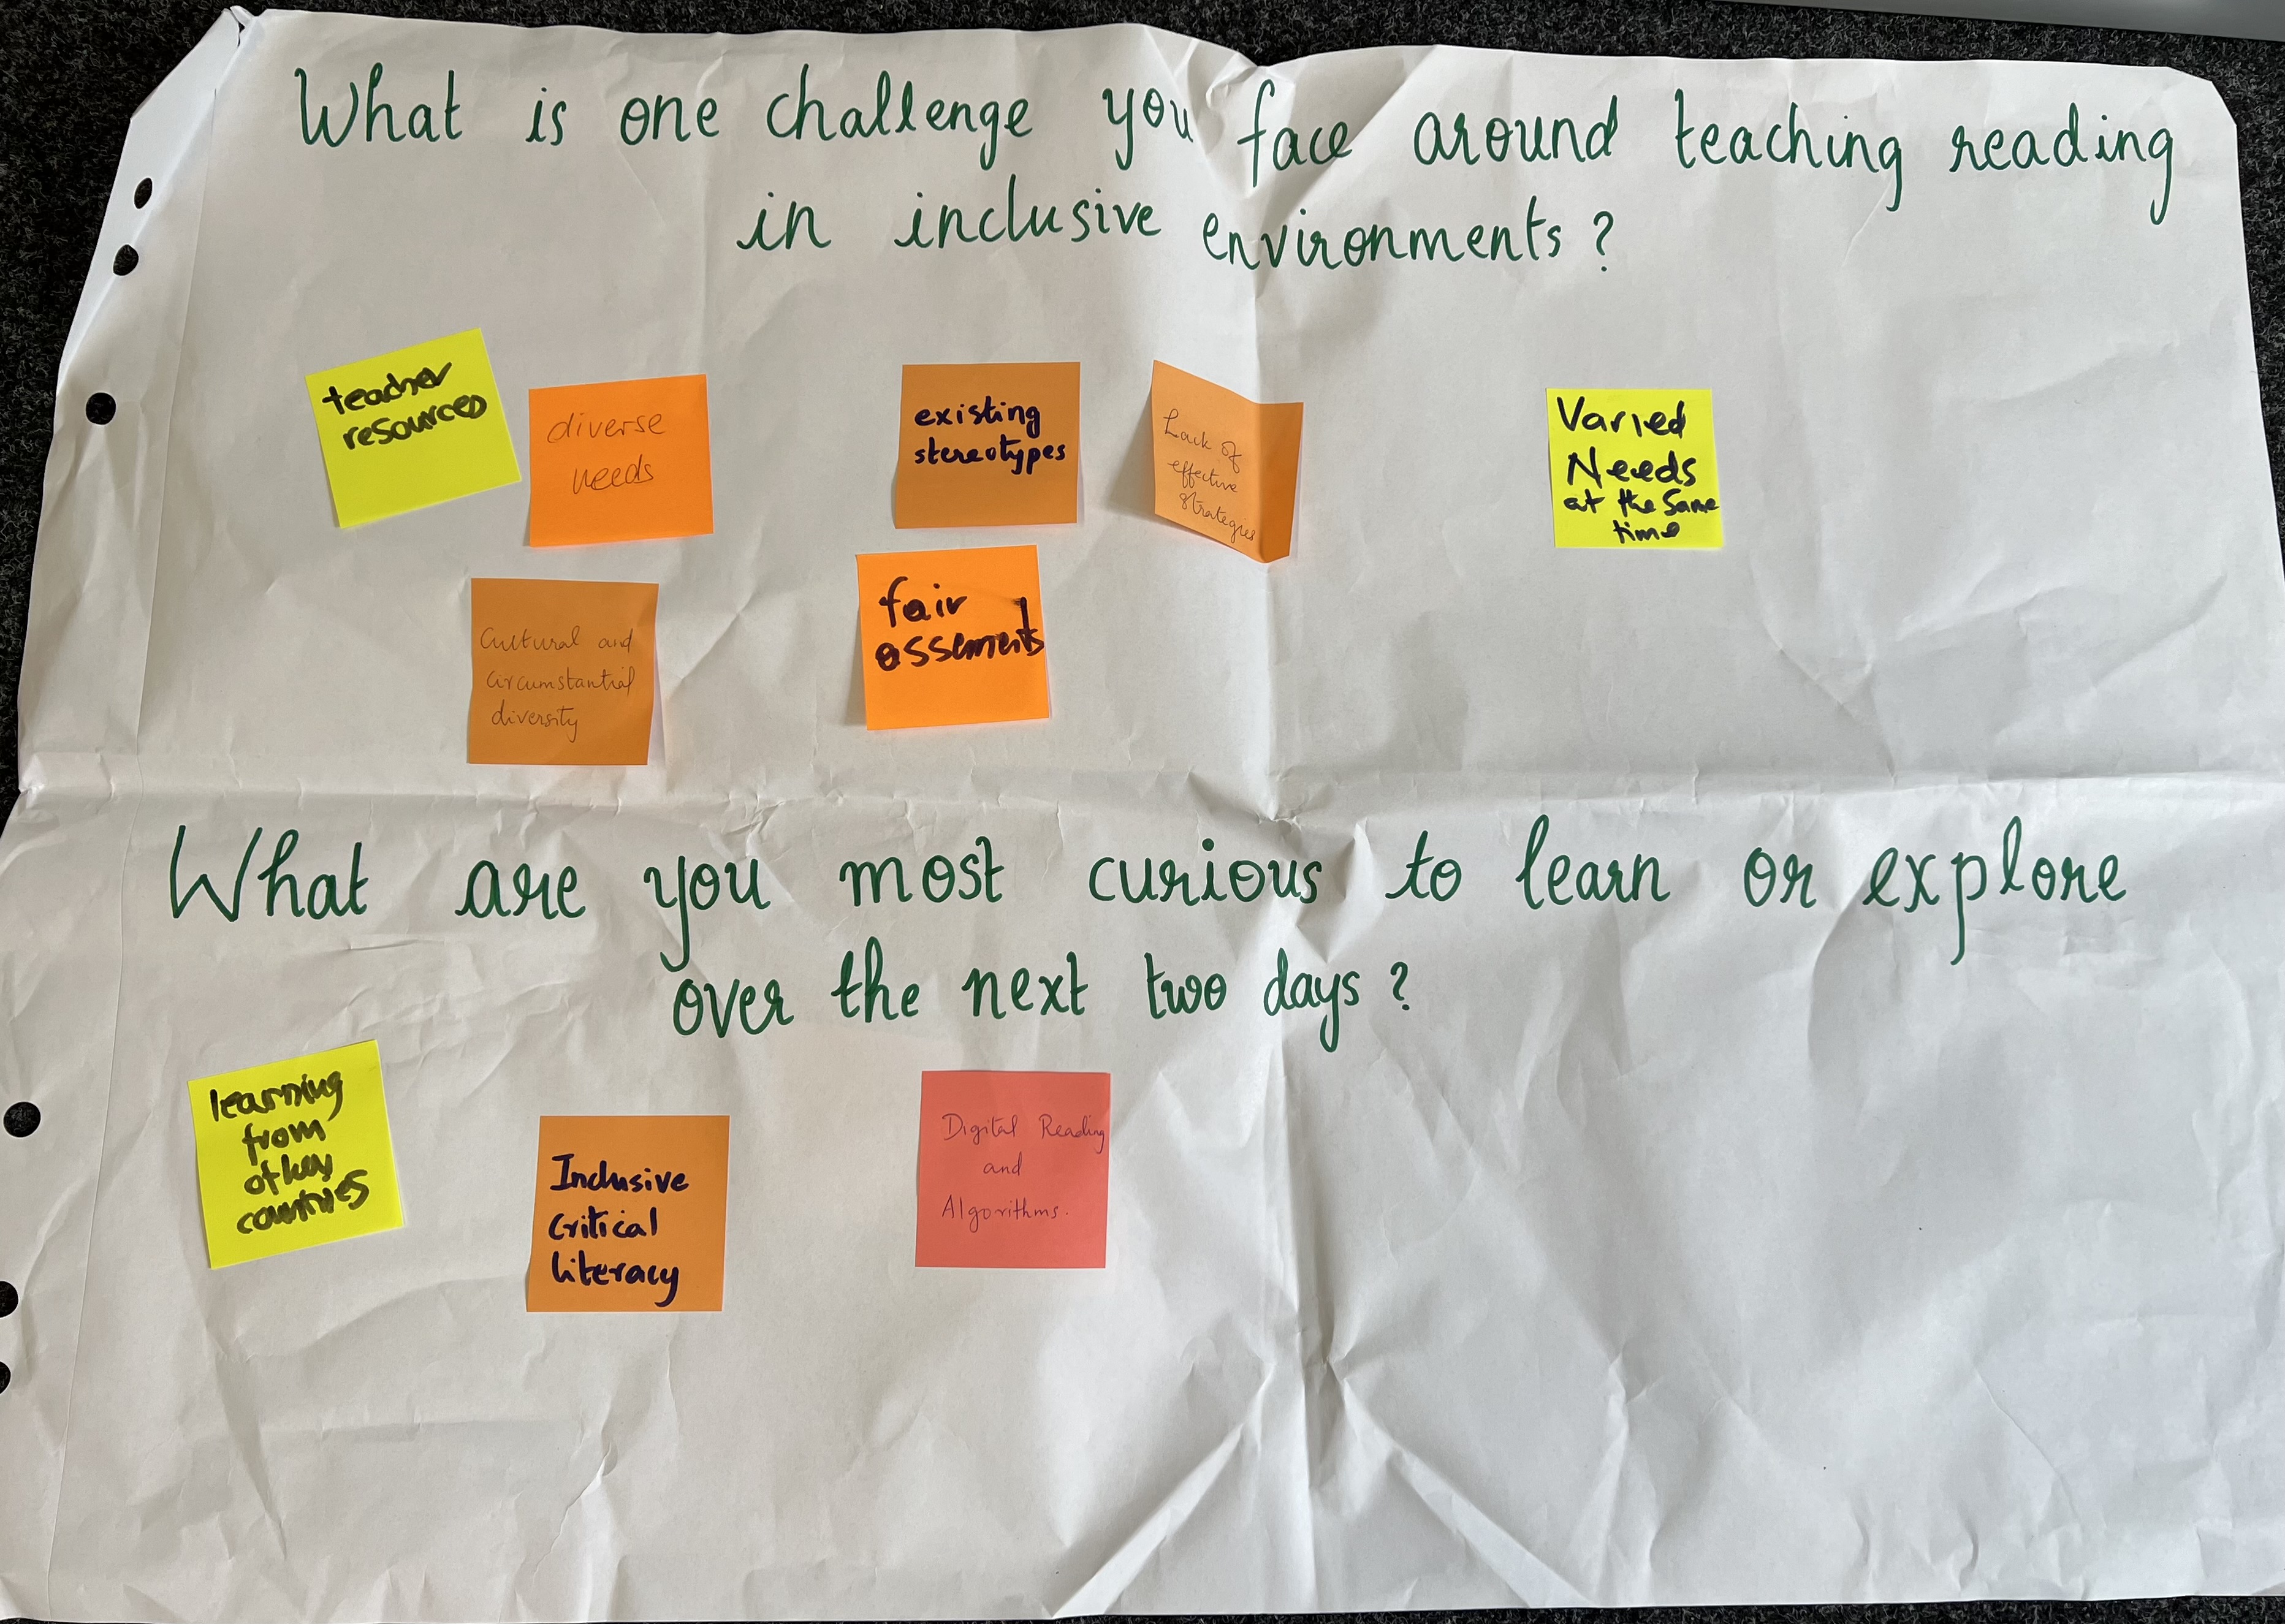 What is one challenge you face around teaching reading
in inclusive environments ?
teacher
resources
diverse
needs
existing
stereotypes
Lack of
effective
strategies
Varied
Needs
at the Same
time
Cultural and
circumstantial
diversity
fair
assements
What are you most curious to learn or explore
over the next two days ?
learning
from
other
countries
Inclusive
Critical
literacy
Digital Reading
and
Algorithms.